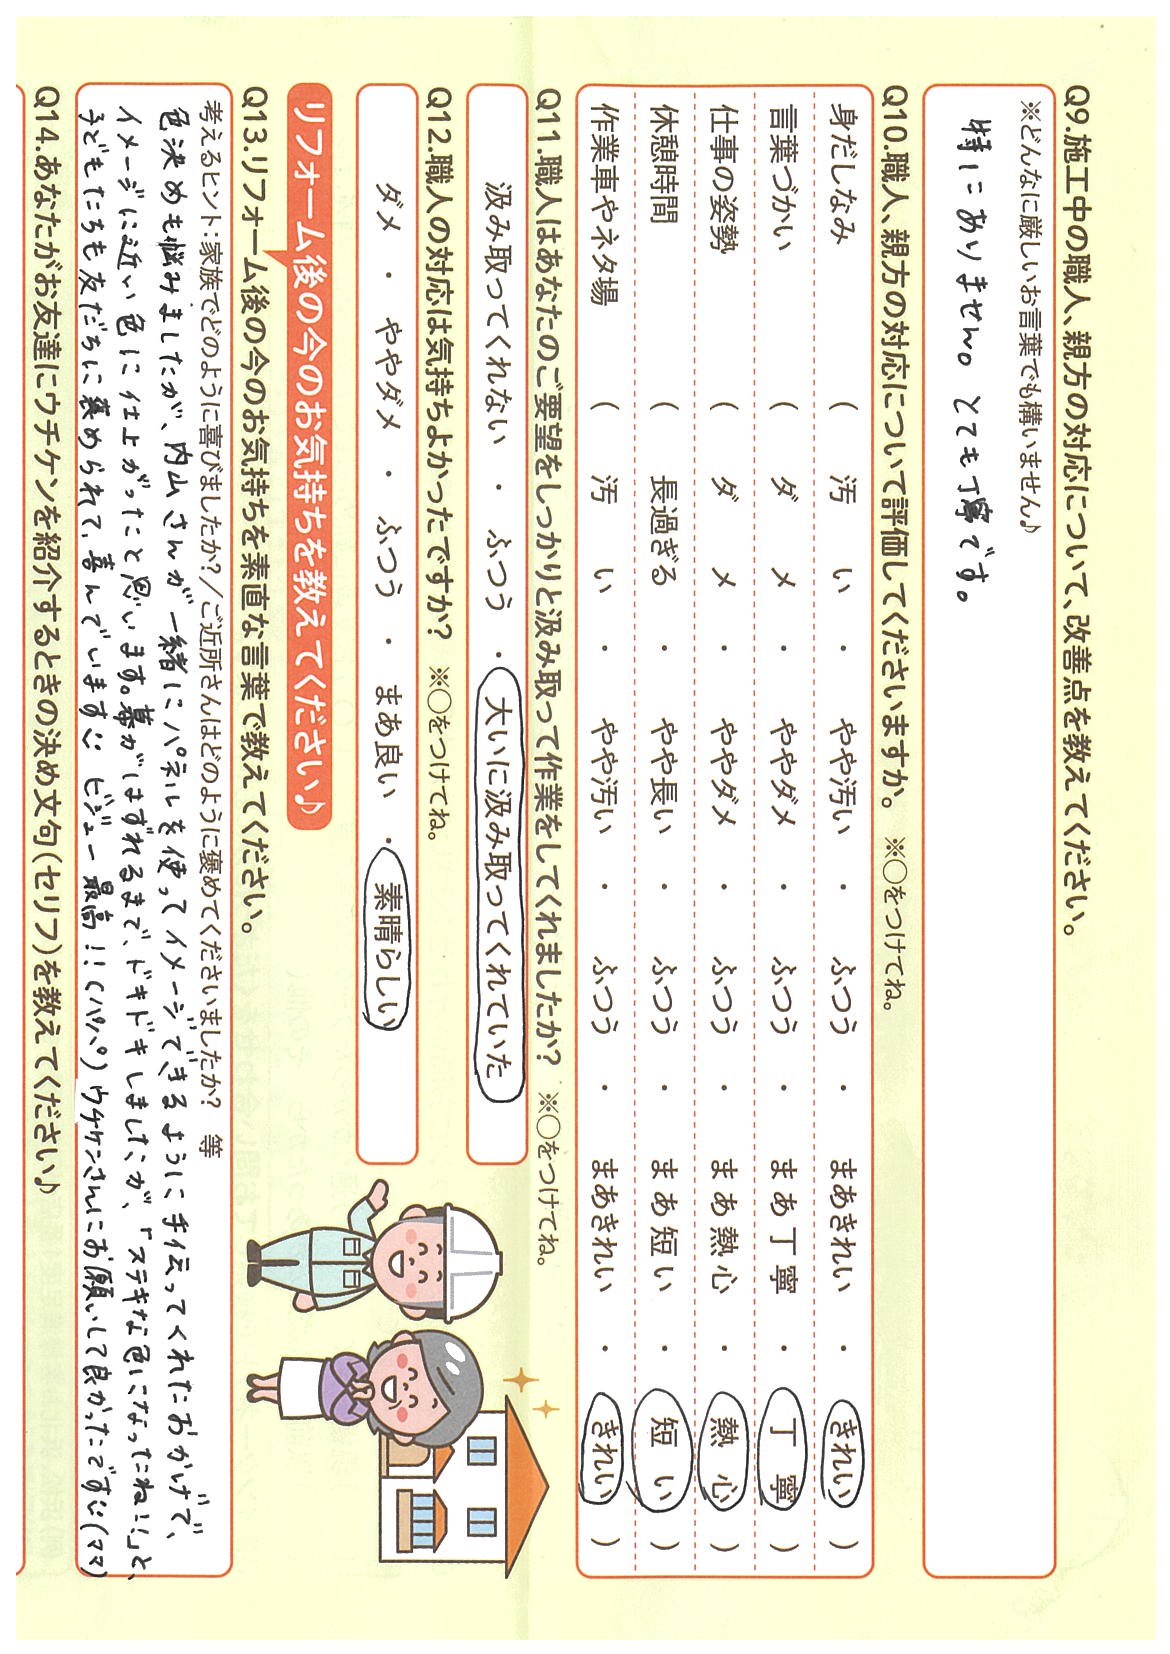 Q9.施工中の職人、親方の対応について、改善点を教えてください。
※どんなに厳しいお言葉でも構いません♪
特にありません。とても丁寧です。
Q10.職人、親方の対応について評価してくださいますか。 ※○をつけてね。
身だしなみ ( 汚い ・ やや汚い ・ ふつう ・ まあきれい ・ きれい )
言葉づかい ( ダメ ・ ややダメ ・ ふつう ・ まあ丁寧 ・ 丁寧 )
仕事の姿勢 ( ダメ ・ ややダメ ・ ふつう ・ まあ熱心 ・ 熱心 )
休憩時間 ( 長過ぎる ・ やや長い ・ ふつう ・ まあ短い ・ 短い )
作業車やネタ場 ( 汚い ・ やや汚い ・ ふつう ・ まあきれい ・ きれい )
Q11.職人はあなたのご要望をしっかりと汲み取って作業をしてくれましたか? ※○をつけてね。
汲み取ってくれない ・ ふつう ・ 大いに汲み取ってくれていた
Q12.職人の対応は気持ちよかったですか? ※○をつけてね。
ダメ ・ ややダメ ・ ふつう ・ まあ良い ・ 素晴らしい
リフォーム後の今のお気持ちを教えてください♪
Q13.リフォーム後の今のお気持ちを素直な言葉で教えてください。
考えるヒント:家族でどのように喜びましたか?/ご近所さんはどのように褒めてくださいましたか? 等
色決めも悩みましたが、内山さんが一緒にパネルを使ってイメージできるように手伝ってくれたおかげで、
イメージに近い色に仕上がったと思います。幕がはずれるまで、ドキドキしましたが、「ステキな色になったね!!」と、
子どもたちも友だちに褒められて、喜んでいます!! ビジュー最高!!(パパ) ウチケンさんにお願いして良かったです!!(ママ)
Q14.あなたがお友達にウチケンを紹介するときの決め文句(セリフ)を教えてください♪